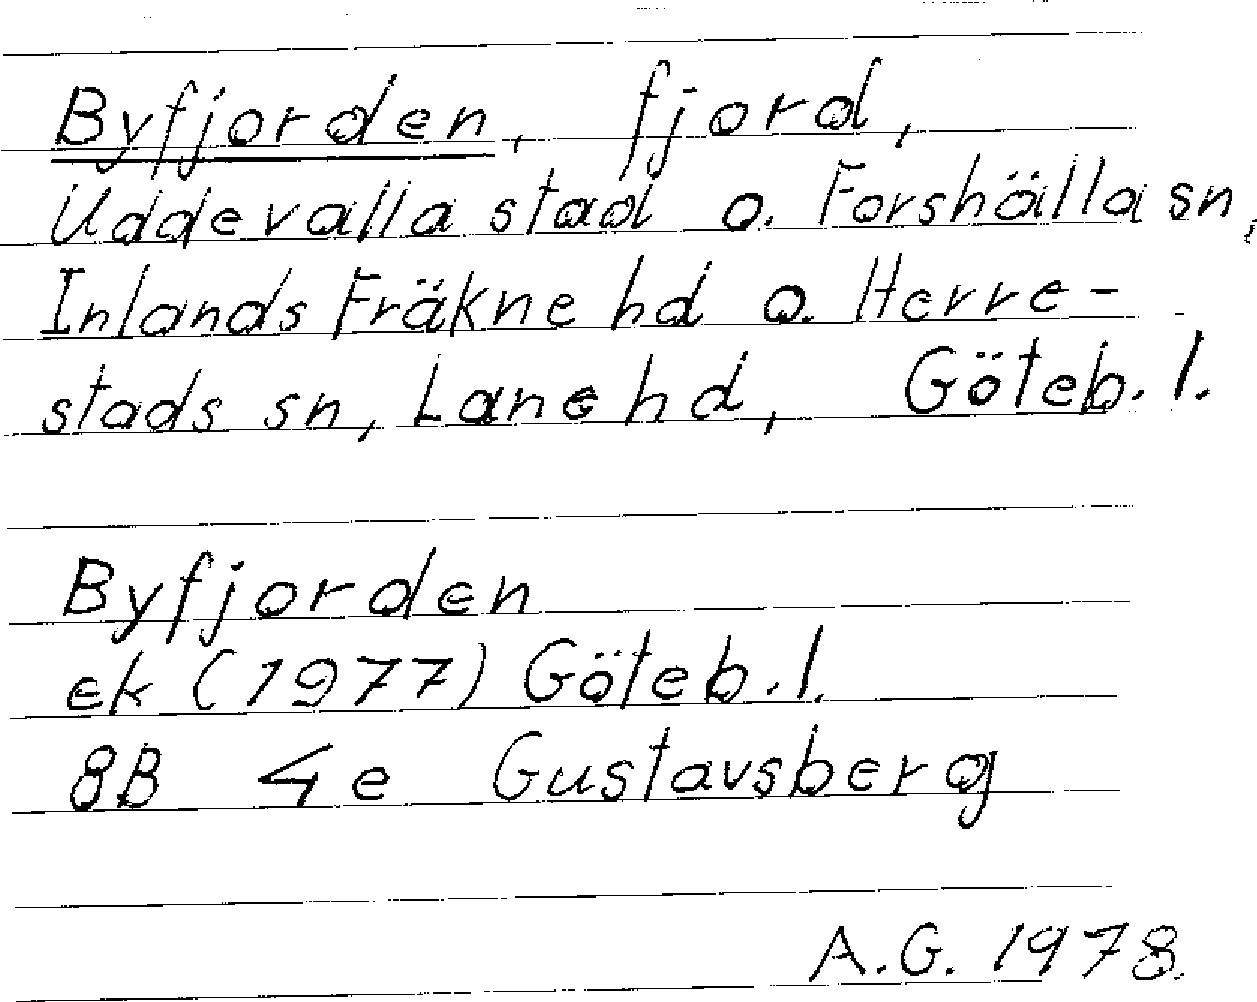 Byfjorden, fjord,
Uddevalla stad o. Forshälla sn,
Inlands Fräkne hd o. Herre-
stads sn, Lane hd, Göteb. l.
Byfjorden
ek (1977) Göteb. l.
8B 4e Gustavsberg
A.G. 1978.